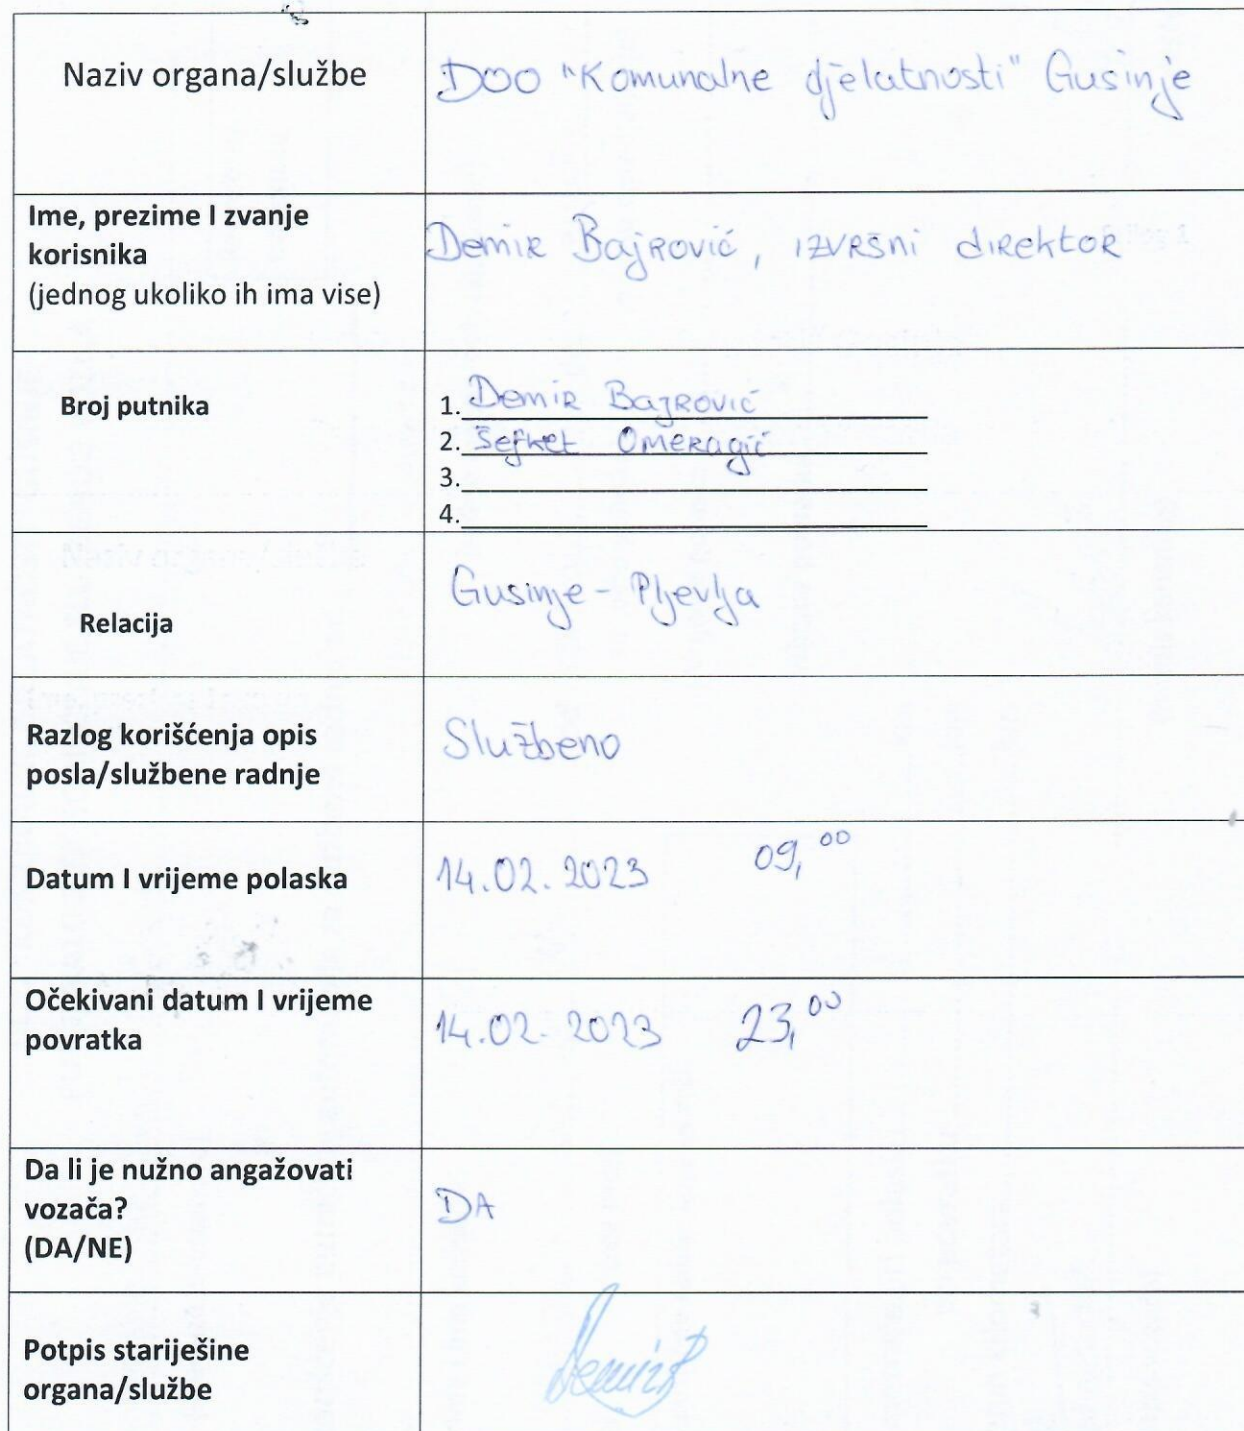 Naziv organa/službe
DOO "Komunalne djelatnosti" Gusinje
Ime, prezime I zvanje
korisnika
(jednog ukoliko ih ima vise)
Demir Bajrović, izvršni direktor
Broj putnika
1. Demir Bajrović
2. Šefket Omeragić
3.
4.
Relacija
Gusinje - Pljevlja
Razlog korišćenja opis
posla/službene radnje
Službeno
Datum I vrijeme polaska
14.02.2023 09,00
Očekivani datum I vrijeme
povratka
14.02.2023 23,00
Da li je nužno angažovati
vozača?
(DA/NE)
DA
Potpis starješine
organa/službe